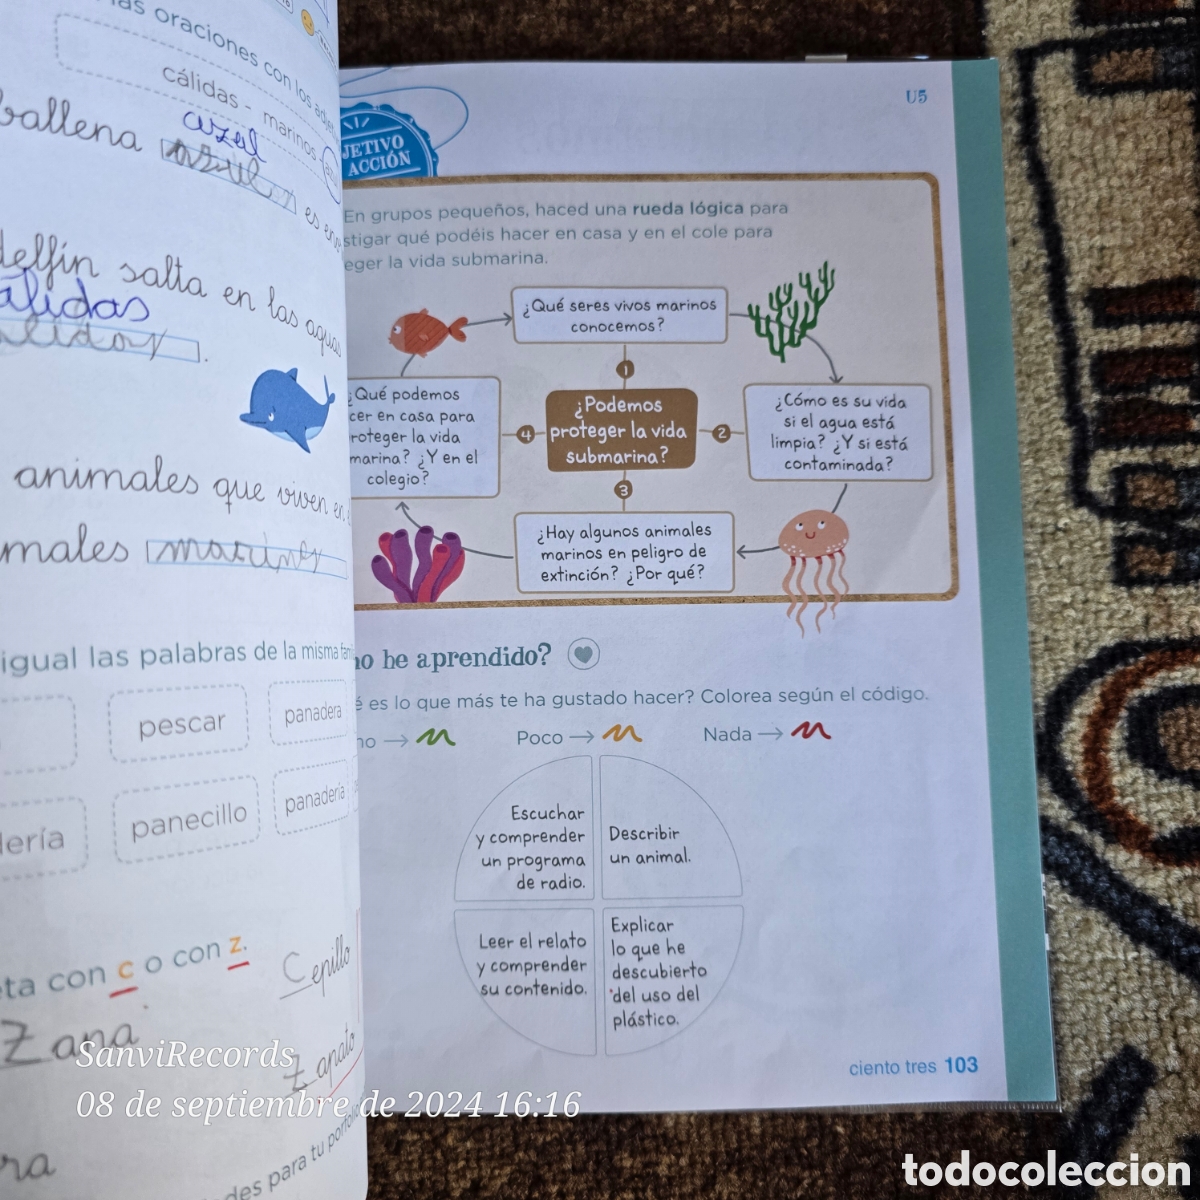 las oraciones con los
cálidas - marinos -
ballena azul es
delfín salta en las aguas
cálidas
.
animales que viven en
males marinos
igual las palabras de la misma
pescar panadera
panecillo panadería
ería
ta con c o con z.
Cepillo
Zana
Zapato
ra
des para tu
U5
JETIVO
ACCIÓN
En grupos pequeños, haced una rueda lógica para
stigar qué podéis hacer en casa y en el cole para
eger la vida submarina.
¿Qué seres vivos marinos
conocemos?
1
¿Podemos
proteger la vida
submarina?
2
¿Cómo es su vida
si el agua está
limpia? ¿Y si está
contaminada?
3
¿Hay algunos animales
marinos en peligro de
extinción? ¿Por qué?
4
¿Qué podemos
cer en casa para
roteger la vida
marina? ¿Y en el
colegio?
mo he aprendido?
é es lo que más te ha gustado hacer? Colorea según el código.
ho → Poco → Nada →
Escuchar
y comprender
un programa
de radio.
Describir
un animal.
Leer el relato
y comprender
su contenido.
Explicar
lo que he
descubierto
del uso del
plástico.
ciento tres 103
SanviRecords
08 de septiembre de 2024 16:16
todocoleccion